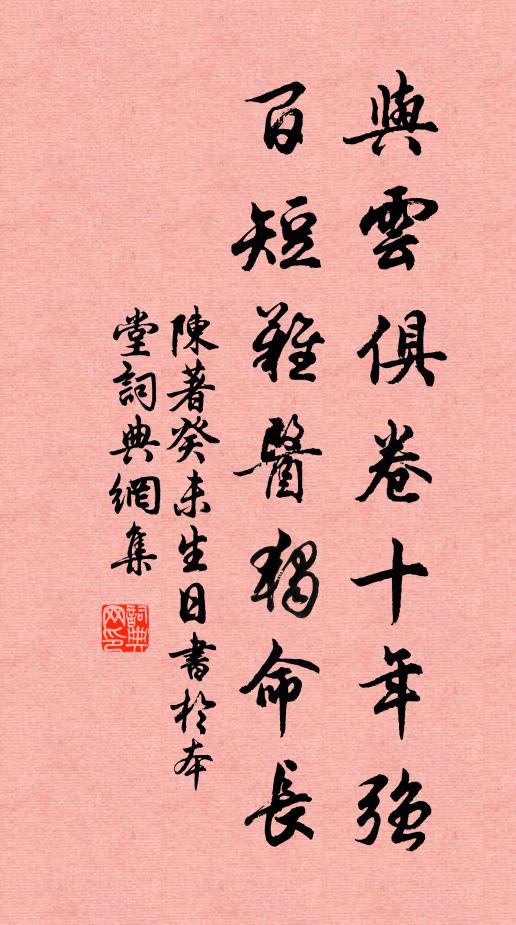 與雲俱卷十年強
百短難醫獨命長
陳著癸未生日書於本
堂詞典網集
詞典網印